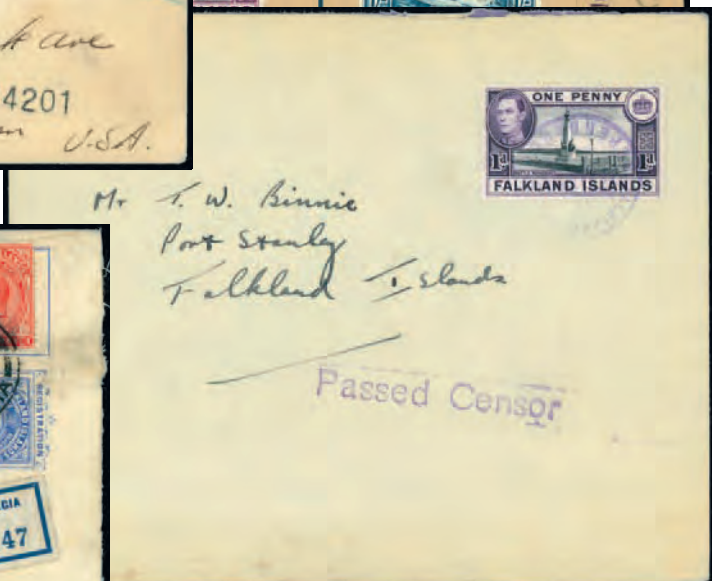 Ave
4201
U.S.A.
ONE PENNY
1d 1d
FALKLAND ISLANDS
Mr T. W. Binnie
Port Stanley
Falkland Islands
Passed Censor
REGISTRATION
GIA
47